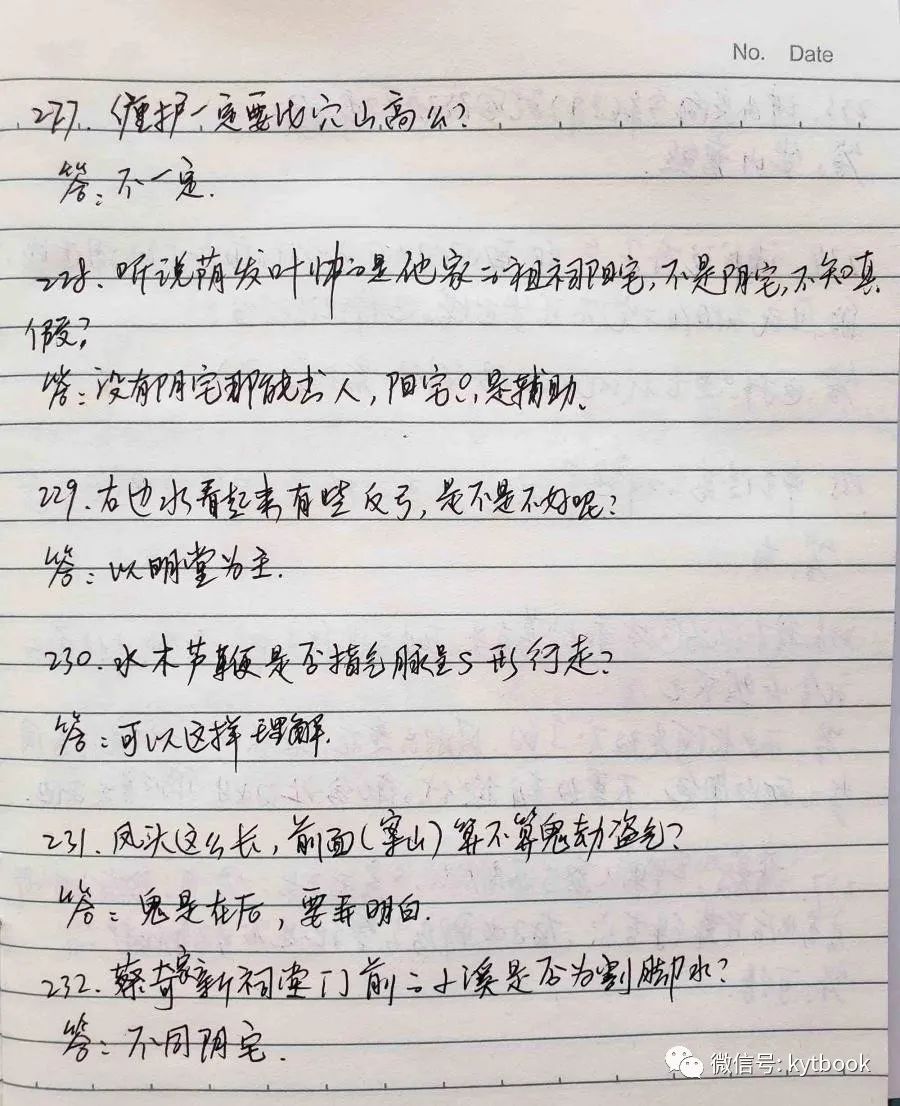 No. Date
227. 缠护一定要比穴山高么?
答:不一定.
228. 听说荫发叶帅的是他家的祖祠阳宅,不是阴宅,不知真
假?
答:没有阴宅那能出人,阳宅只是辅助.
229. 右边水看起来有些反弓,是不是不好呢?
答:以明堂为主.
230. 水木节鞭是否指气脉呈S形行走?
答:可以这样理解.
231. 凤头这么长,前面(案山)算不算鬼劫盗气?
答:鬼是在后,要弄明白.
232. 蔡奇家新祠堂门前的小溪是否为割脚水?
答:不同阴宅.
微信号: kytbook